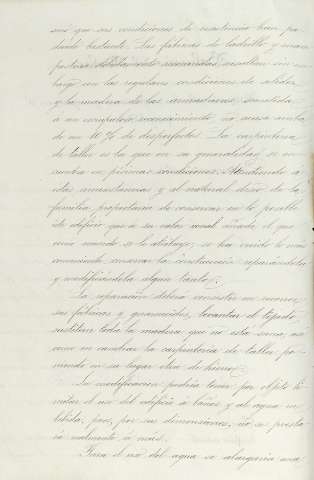 sos que sus condiciones de resistencia han per-
dido bastante. Las fábricas de ladrillo y mam-
postería debidamente reconocidas, resultan sin em-
bargo con las regulares condiciones de solidez
y la madera de las armaduras, sometida
á un escrupuloso reconocimiento, no acusa arriba
de un 10 % de desperfectos. La carpintería
de taller es la que en su generalidad, se en-
cuentra en pésimas condiciones. Atendiendo á
estas circunstancias y al natural deseo de la
familia propietaria de conservar en lo posible
este edificio que á su valor venal añade el que
como recuerdo se le atribuye, se ha creido lo más
conveniente conservar la construcción reparándola
y modificándola algun tanto.
La reparación deberá consistir en recorrer
sus fábricas y guarnecidos, levantar el tejado,
sustituir toda la madera que no esté sana, así
como en cambiar la carpintería de taller po-
niendo en su lugar otra de hierro.
La modificación podría tener por objeto li-
mitar el uso del edificio á baños y al agua en
bebida, pues, por sus dimensiones, no se presta
realmente á más.
Para el uso del agua se alargaría una